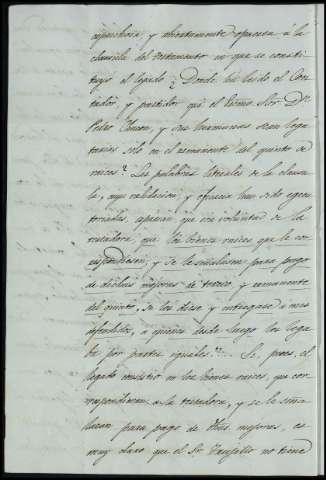 y abiertamente opuesta á la
clausula del testamento en que se consti-
tuyó el legado? Donde ha leido el Con-
tador, y partidor que el Exmo. Sor. Dn.
Pedro y sus hermanos sean lega-
tarios solo en el remanente del quinto de
raices? Las palabras literales de la clausu-
la, cuya validacion, y eficacia han sido egecu-
toriadas, que era voluntad de la
testadora, que los bienes raices que le co-
rrespondiesen, y se la señalasen para pago
de mejoras de tercio, y remanente
del quinto, se los diese, y entregase á sus
á quienes desde luego los lega-
ba por partes iguales.... Si, pues, el
legado consistió en los bienes raices, que cor-
respondieran á la testadora, y se la seña-
laran para pago de dhas mejoras, es
muy claro que el Sr. Trujillo no tiene